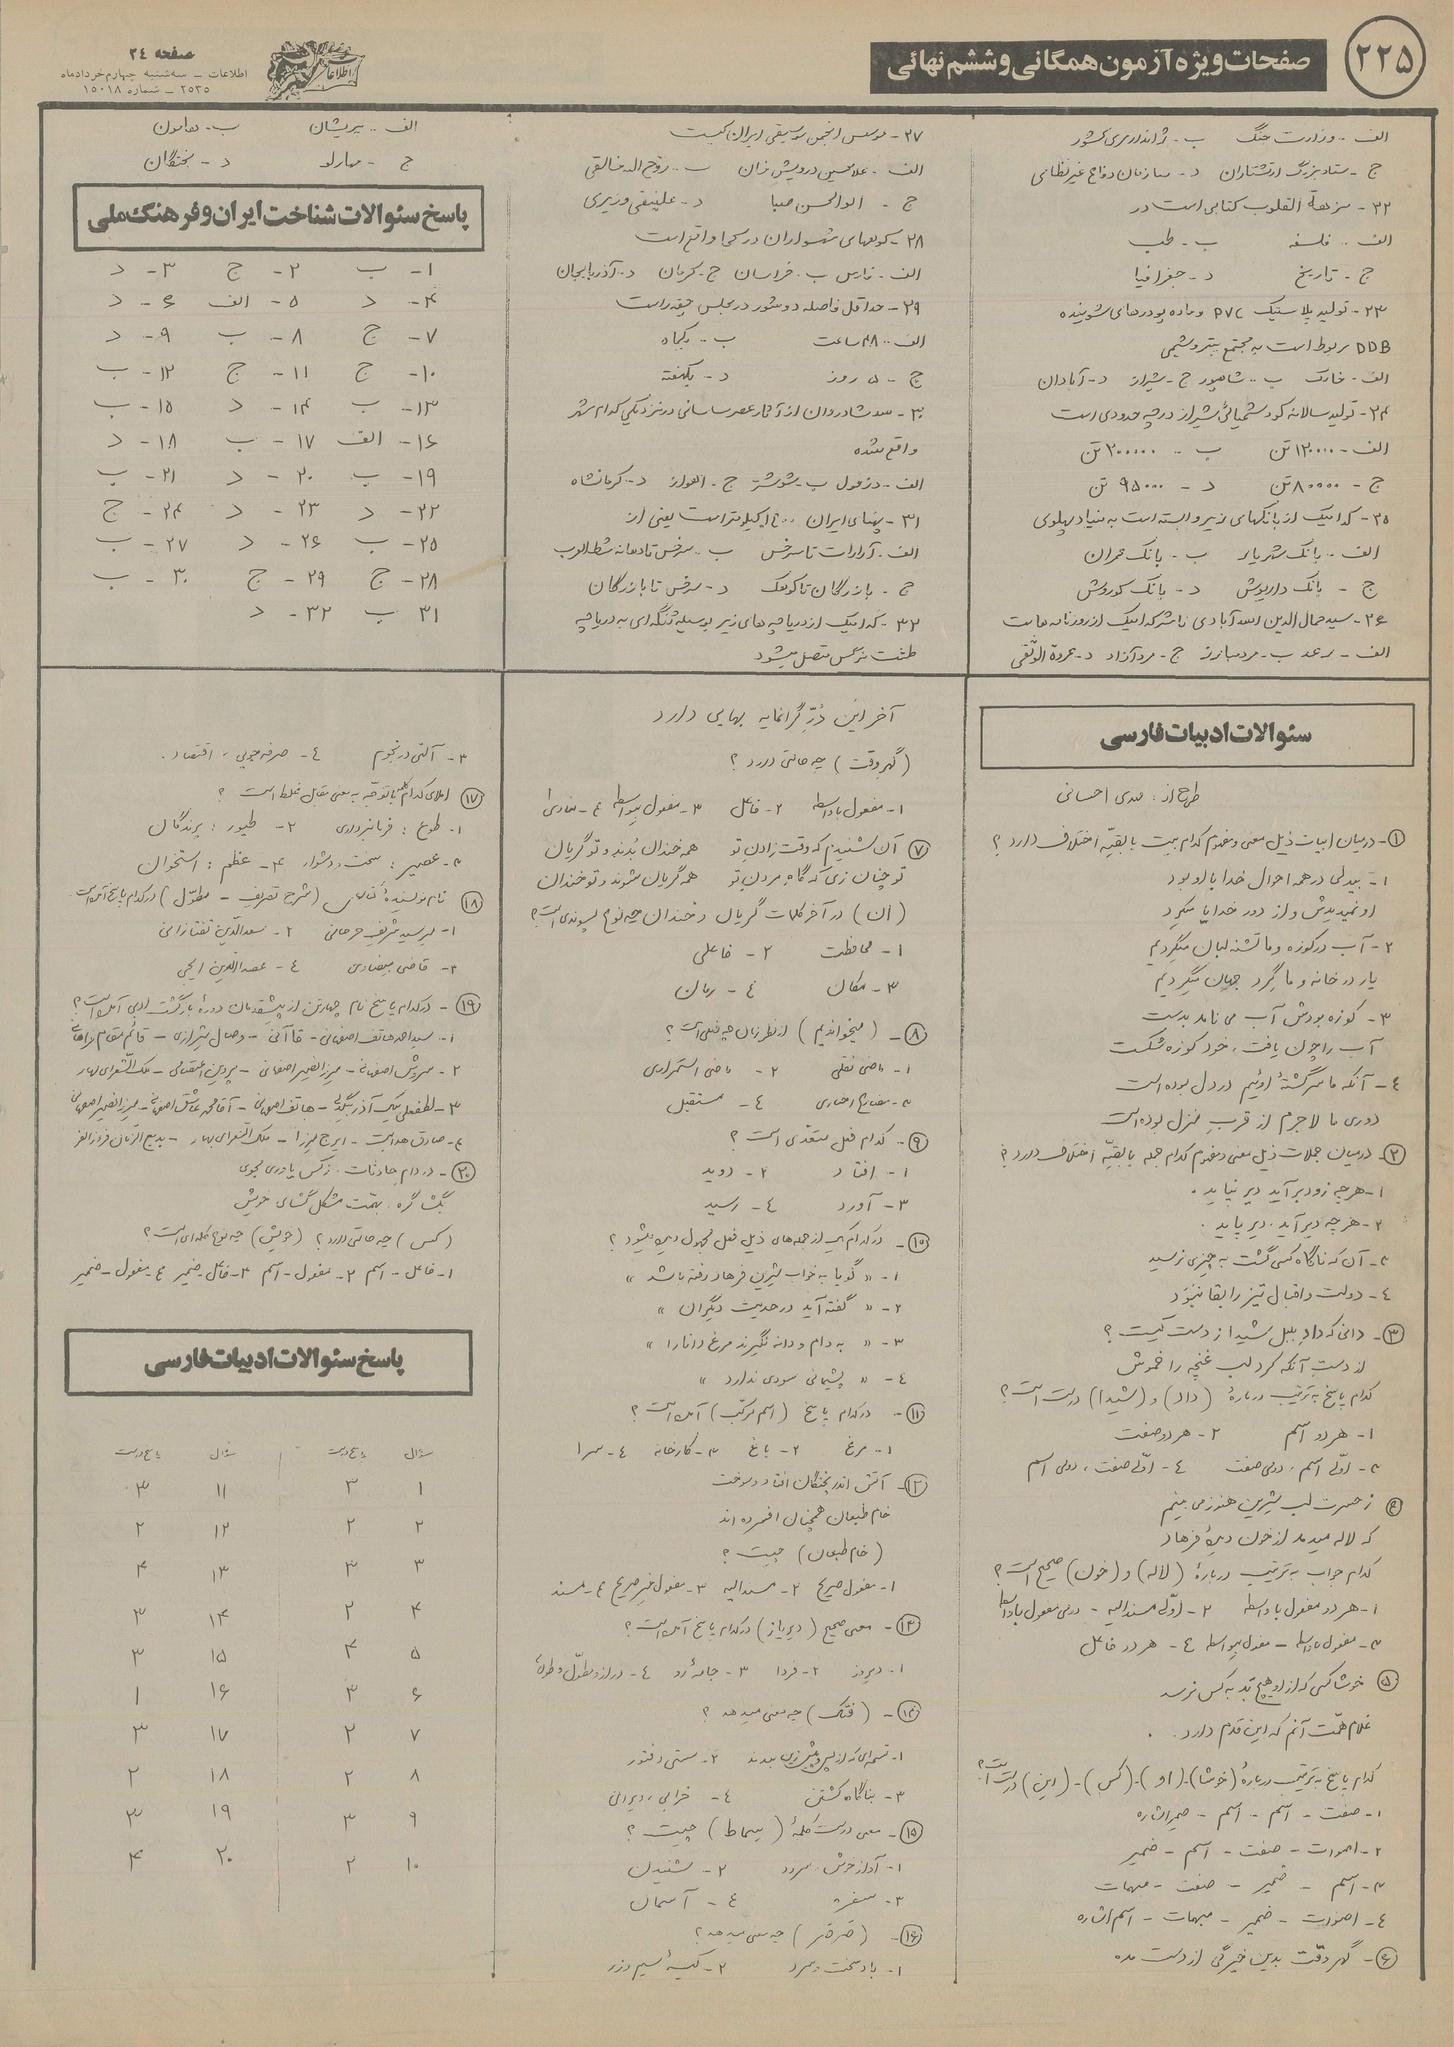 ۲۲۵
صفحات ویژه آزمون همگانی و ششم نهائی
صفحه ۲۴
اطلاعات ـ سه‌شنبه چهارم خردادماه
۲۵۳۵ ـ شماره ۱۵۰۱۸
الف - وزارت جنگ ب - ژاندارمری کشور
ج - ستاد بزرگ ارتشتاران د - سازمان دفاع غیرنظامی
۲۲- نزهة القلوب کتابی است در
الف - فلسفه ب - طب
ج - تاریخ د - جغرافیا
۲۳- تولید پلاستیک PVC و ماده پودرهای شوینده
DDB مربوط است به مجتمع پتروشیمی
الف - خارک ب - شاهپور ج - شیراز د - آبادان
۲۴- تولید سالانه کود شیمیائی شیراز در چه حدودی است
الف - ۱۲۰۰۰۰ تن ب - ۲۰۰۰۰۰ تن
ج - ۸۰۰۰۰ تن د - ۹۵۰۰۰ تن
۲۵- کدامیک از بانکهای زیر وابسته است به بنیاد پهلوی
الف - بانک شهریار ب - بانک عمران
ج - بانک داریوش د - بانک کوروش
۲۶- سید جمال الدین اسدآبادی ناشر کدامیک از روزنامه هاست
الف - رعد ب - مرد مبارز ج - مرد آزاد د - عروة الوثقی
۲۷- موسس انجمن موسیقی ایران کیست
الف - غلامحسین درویش خان ب - روح اله خالقی
ج - ابوالحسن صبا د - علینقی وزیری
۲۸- کوههای شهسواران در کجا واقع است
الف - فارس ب - خراسان ج - کرمان د - آذربایجان
۲۹- حداقل فاصله دو شور در مجلس چقدر است
الف - ۴۸ ساعت ب - یکماه
ج - ۵ روز د - یکهفته
۳۰- سد شادروان از آثار عصر ساسانی در نزدیکی کدام شهر
واقع شده
الف - دزفول ب - شوشتر ج - اهواز د - کرمانشاه
۳۱- پهنای ایران ۱۴۰۰ کیلومتر است یعنی از
الف - آرارات تا سرخس ب - سرخس تا دهانه شط العرب
ج - بازرگان تا کوهک د - سرخس تا بازرگان
۳۲- کدامیک از دریاچه های زیر بوسیله تنگه ای به دریاچه
طشت نرگس متصل میشود
الف - پریشان ب - هامون
ج - مهارلو د - بختگان
پاسخ سئوالات شناخت ایران و فرهنگ ملی
۱- ب ۲- ج ۳- د
۴- د ۵- الف ۶- د
۷- ج ۸- ب ۹- د
۱۰- ج ۱۱- ج ۱۲- ب
۱۳- ب ۱۴- د ۱۵- ب
۱۶- الف ۱۷- ب ۱۸- د
۱۹- ب ۲۰- د ۲۱- ب
۲۲- د ۲۳- د ۲۴- ج
۲۵- ب ۲۶- د ۲۷- ب
۲۸- ج ۲۹- ج ۳۰- ب
۳۱ ب ۳۲- د
سئوالات ادبیات فارسی
طرح از: مهدی احسانی
۱- درمیان ابیات ذیل معنی و مفهوم کدام بیت با بقیّه اختلاف دارد؟
۱- بیدلی در همه احوال خدا با او بود
او نمیدیدش و از دور خدایا میکرد
۲- آب در کوزه و ما تشنه لبان میگردیم
یار در خانه و ما گرد جهان میگردیم
۳- کوزه بودش آب می نامد بدست
آب را چون یافت، خود کوزه شکست
٤- آنکه ما سرگشتهٔ اوئیم در دل بوده است
دوری ما لاجرم از قرب منزل بوده است
۲- درمیان جملات ذیل معنی و مفهوم کدام جمله با بقیّه اختلاف دارد؟
۱- هرچه زود برآید دیر نپاید.
۲- هرچه دیر آید، دیر پاید.
۳- آن که ناگاه کسی گشت به چیزی نرسید
٤- دولت و اقبال تیز را بقا نبُوَد
۳- دانی که داد بلبل شیدا ز دست کیست؟
از دستِ آنکه کرد لب غنچه را خموش
کدام پاسخ به ترتیب دربارهٔ (داد) و (شیدا) درست است؟
۱- هر دو اسم ۲- هر دو صفت
۳- اوّلی اسم، دومی صفت ٤- اوّلی صفت، دومی اسم
۴ ز حسرت لب شیرین هنوز می بینم
که لاله میدمد از خون دیدهٔ فرهاد
کدام جواب به ترتیب دربارهٔ (لاله) و (خون) صحیح است؟
۱- هر دو مفعول باواسطه ۲- اوّلی مسندالیه - دومی مفعول باواسطه
۳- مفعول باواسطه - مفعول بیواسطه ٤- هر دو فاعل
۵ خوشا کسی که از او هیچ بد به کس نرسد
غلام همّت آنم که این قدم دارد.
کدام پاسخ به ترتیب دربارهٔ (خوشا) - (او) - (کس) - (این) درست است؟
۱- صفت - اسم - اسم - ضمیر اشاره
۲- اصوات - صفت - اسم - ضمیر
۳- اسم - ضمیر - صفت - مبهمات
٤- اصوات - ضمیر - مبهمات - اسم اشاره
۶- گهر وقت بدین خیرگی از دست مده
آخر این دُرّ گرانمایه بهایی دارد
(گهر وقت) چه حالتی دارد؟
۱- مفعول باواسطه ۲- فاعل ۳- مفعول بیواسطه ٤- منادی
۷ آن شنیدم که وقت زادن تو همه خندان بُدند و تو گریان
تو چنان زی که گاه مردن تو همه گریان شوند و تو خندان
(ان) در آخر کلمات گریان و خندان چه نوع پسوندی است؟
۱- محافظت ۲- فاعلی
۳- مکان ٤- زمان
۸- (میخواندیم) از نظر زمان چه فعلی است؟
۱- ماضی نقلی ۲- ماضی استمراری
۳- مضارع اخباری ٤- مستقبل
۹- کدام فعل متعّدی است؟
۱- افتاد ۲- دوید
۳- آورد ٤- رسید
۱۰- در کدام یک از جمله های ذیل فعل مجهول دیده میشود؟
۱- «گویا به خواب شیرین فرهاد رفته باشد»
۲- «گفته آید در حدیث دیگران»
۳- «به دام و دانه نگیرند مرغ دانا را»
٤- «پشیمانی سودی ندارد»
۱۱- در کدام پاسخ (اسم مرکّب) آمده است؟
۱- مرغ ۲- باغ ۳- کارخانه ٤- سرا
۱۲- آتش اندر پختگان افتاد و سوخت
خام طبعان همچنان افسرده اند
(خام طبعان) چیست؟
۱- مفعول صریح ۲- مسندالیه ۳- مفعول غیر صریح ٤- مسند
۱۳- معنی صحیح (دیرباز) در کدام پاسخ آمده است؟
۱- دیروز ۲- فردا ۳- جامهٔ رو ٤- دراز و مطوّل و طولانی
۱۴- (فتک) چه معنی میدهد؟
۲- سستی و فتور
۳- بناگاه کشتن ٤- خرابی، ویرانی
۱۵- معنی درست کلمهٔ (سِماط) چیست؟
۱- آواز خوش، سرود ۲- شنیدن
۳- سفره ٤- آسمان
۱۶- (صَرصَر) چه معنی میدهد؟
۱- باد سخت و سرد ۲- کیسهٔ سیم و زر
۳- آلتی در نجوم ٤- صرفه جویی، اقتصاد.
۱۷ املای کدام کلمه با توجّه به معنی مقابل غلط است؟
۱- طوع: فرمانبرداری ۲- طیور: پرندگان
۳- عصیر: سخت و دشوار ۴- عظم: استخوان
۱۸ نام نویسندهٔ کتاب (شرح تصریف - مطوّل) در کدام پاسخ آمده است
۱- میر سید شریف جرجانی ۲- سعدالدّین تفتازانی
۳- قاضی بیضاوی ٤- عضدالدّین ایجی
۱۹- در کدام پاسخ نام چهارتن از پیشقدمان دورهٔ بازگشت ادبی آمده است؟
۱- سید احمد هاتف اصفهانی - قاآنی - وصال شیرازی - قائم مقام فراهانی
۲- سروش اصفهانی - میرزا نصیر اصفهانی - پروین اعتصامی - ملک الشّعرای بهار
۳- لطفعلی بیک آذر بیگدلی - هاتف اصفهانی - آقا محمد عاشق اصفهانی - میرزا نصیر اصفهانی
٤- صادق هدایت - ایرج میرزا - ملک الشعرای بهار - بدیع الزّمان فروزانفر
۲۰- در دام حادثات، ز کس یاوری مجوی
بگشا گره، بهمّت مشکل گشای خویش
(کس) چه حالتی دارد؟ (خویش) چه نوع کلمه ای است؟
۱- فاعل - اسم ۲- مفعول - اسم ۳- فاعل - ضمیر ٤- مفعول - ضمیر
پاسخ سئوالات ادبیات فارسی
سؤال پاسخ درست سؤال پاسخ درست
۱ ۳ ۱۱ ۳
۲ ۲ ۱۲ ۲
۳ ۳ ۱۳ ۴
۴ ۲ ۱۴ ۳
۵ ۴ ۱۵ ۳
۶ ۳ ۱۶ ۱
۷ ۲ ۱۷ ۳
۸ ۲ ۱۸ ۲
۹ ۳ ۱۹ ۳
۱۰ ۲ ۲۰ ۴